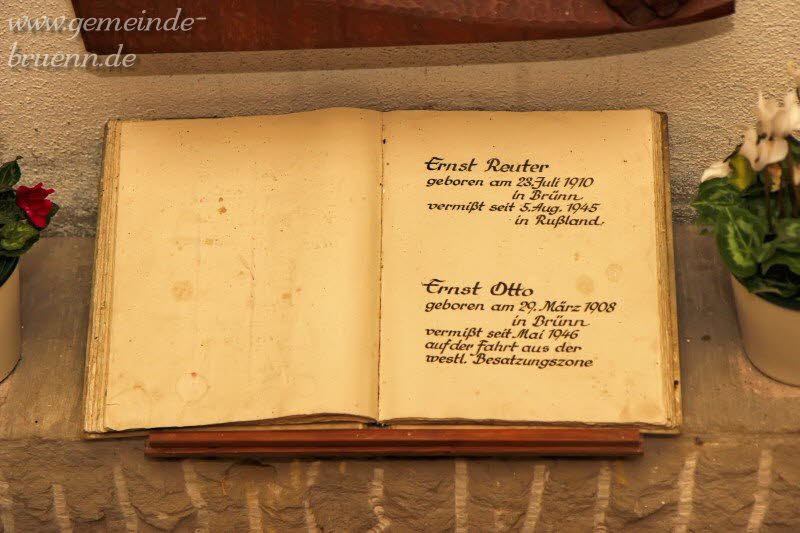 www.gemeinde-
bruenn.de
Ernst Reuter
geboren am 28. Juli 1910
in Brünn
vermißt seit 5. Aug. 1945
in Rußland
Ernst Otto
geboren am 29. März 1908
in Brünn
vermißt seit Mai 1946
auf der Fahrt aus der
westl. Besatzungszone